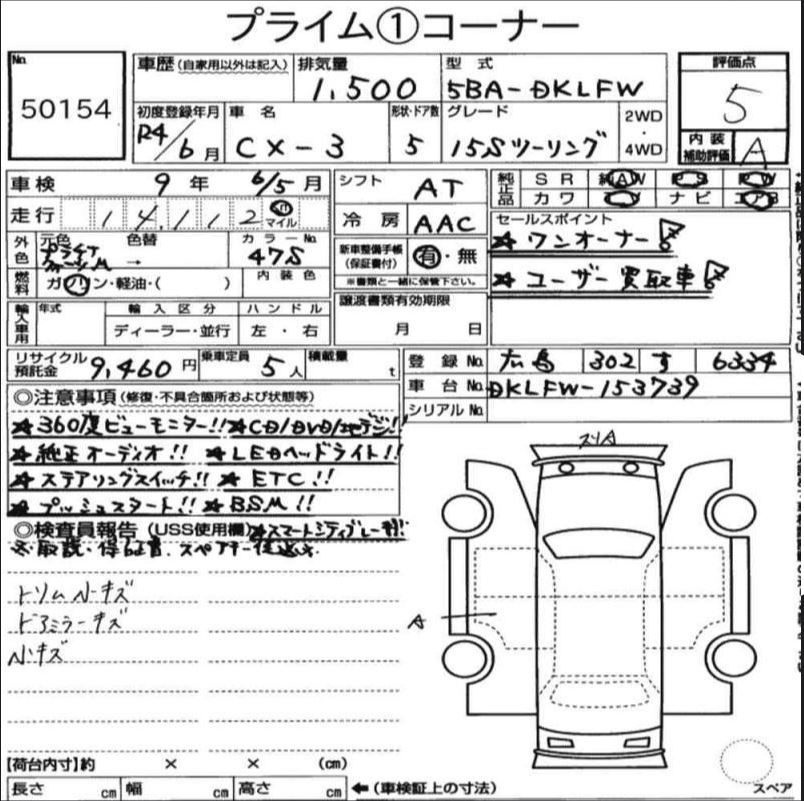 プライム①コーナー
No. 50154
車歴 (自家用以外は記入) 排気量 1,500 型式 5BA-DKLFW 評価点 5
初度登録年月 R4/6月 車名 CX-3 形状・ドア数 5 グレード 15Sツーリング 2WD・4WD 内装補助評価 A
車検 9年 6/5月 シフト AT 純正品 SR 純AW PS PW
走行 14,112 km マイル 冷房 AAC カワ ナビ エアB
外色 元色 色替 → カラーNo. 47S 新車整備手帳(保証書付) 有・無 セールスポイント
※書類と一緒に保管下さい。 ★ワンオーナー!
燃料 ガソリン・軽油・( ) 内装色 譲渡書類有効期限 月 日 ★ユーザー買取車!
輸入車用 年式 輸入区分 ディーラー・並行 ハンドル 左・右
リサイクル預託金 9,460円 乗車定員 5人 積載量 t 登録No. 広島 302 す 6334
車台No. DKLFW-153739
シリアルNo.
◎注意事項 (修復・不具合箇所および状態等)
★360度ビューモニター!!★CD/DVD/地デジ!!
★純正オーディオ!! ★LEDヘッドライト!!
★ステアリングスイッチ!! ★ETC!!
★プッシュスタート!!★BSM!!
◎検査員報告 (USS使用欄) ★スマートシティブレーキ!!
※取説・保証書、スペアキー後送★
トリム小キズ
ドアミラーキズ
小キズ
スリA
A
【荷台内寸】約 × × (cm)
長さ cm 幅 cm 高さ cm ←(車検証上の寸法)
スペア